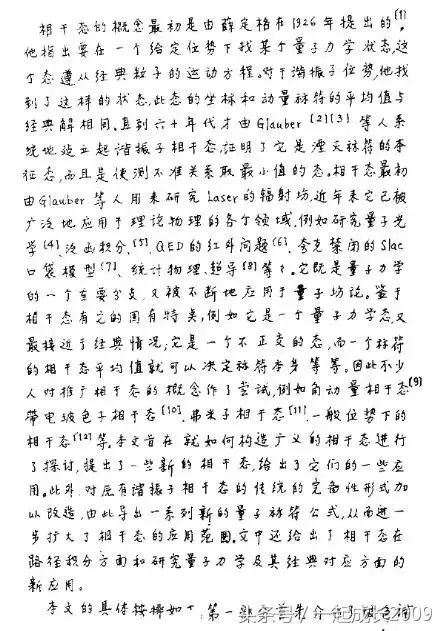 相干态的概念最初是由薛定格在1926年提出的,[1]
他指出要在一个给定位势下找某个量子力学状态,这
个态遵从经典粒子的运动方程。对于谐振子位势,他找
到了这样的状态,此态的坐标和动量祘符的平均值与
经典解相同。直到六十年代才由Glauber [2][3] 等人系
统地建立起谐振子相干态,证明了它是湮灭祘符的本
征态,而且是使测不准关系取最小值的态。相干态最初
由Glauber等人用来研究Laser的辐射场,近年来它已被
广泛地应用于理论物理的各个领域,例如研究量子光
学[4]、泛函积分、[5]、QED的红外问题[6]、夸克禁闭的Slac
口袋模型[7]、统计物理、超导[8]等。它既是量子力学
的一个重要分支,又被不断地应用于量子场论。鉴于
相干态有它的固有特点,例如它是一个量子力学态,又
最接近于经典情况;它是一个不正交的态,而一个祘符
的相干态平均值就可以决定祘符本身等等。因此不少
人对推广相干态的概念作了尝试,例如角动量相干态[9]
带电玻色子相干态[10]、弗米子相干态[11]、一般位势下的
相干态[12]等。本文旨在就如何构造广义的相干态进行
了探讨,提出了一些新的相干态,给出了它们的一些应
用。此外,对原有谐振子相干态的传统的完备性形式加
以改造,由此导出一系列新的量子祘符公式,从而进一
步扩大了相干态的应用范围。文中还给出了相干态在
路径积分方面和研究量子力学及其经典对应方面的
新应用。
本文的具体安排如下,第一
头条号/一起成长2009